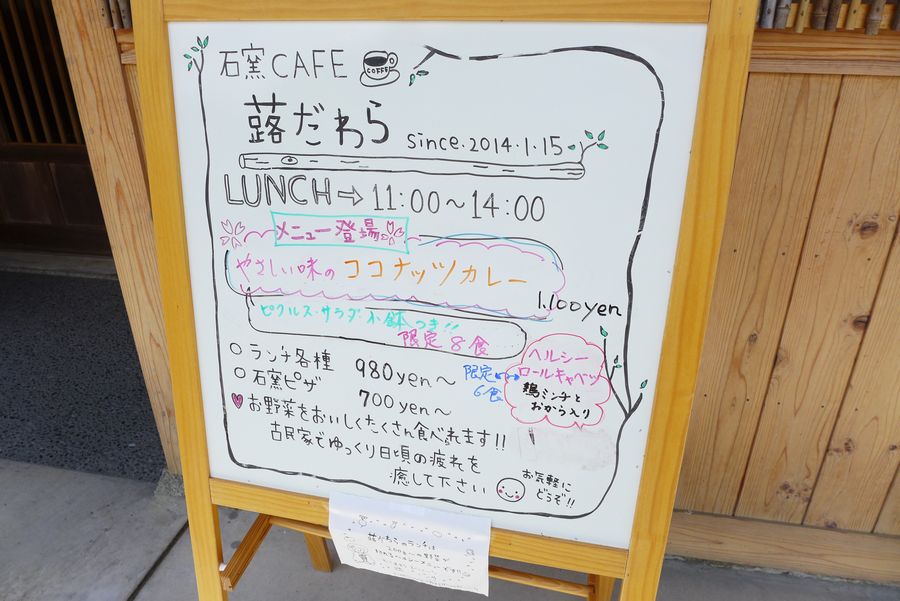 石窯 CAFE COFFEE
蕗だわら since.2014.1.15
LUNCH⇨11:00~14:00
メニュー登場
やさしい味の ココナッツカレー
1,100yen
ピクルス・サラダ・小鉢つき!!
限定8食
○ ランチ各種 980yen~
○ 石窯ピザ 700yen~
ヘルシー
ロールキャベツ
鶏ミンチと
おから入り
限定
6食
♥お野菜をおいしくたくさん食べれます!!
古民家でゆっくり日頃の疲れを
癒して下さい
お気軽に
どうぞ!!
蕗だわらのランチは